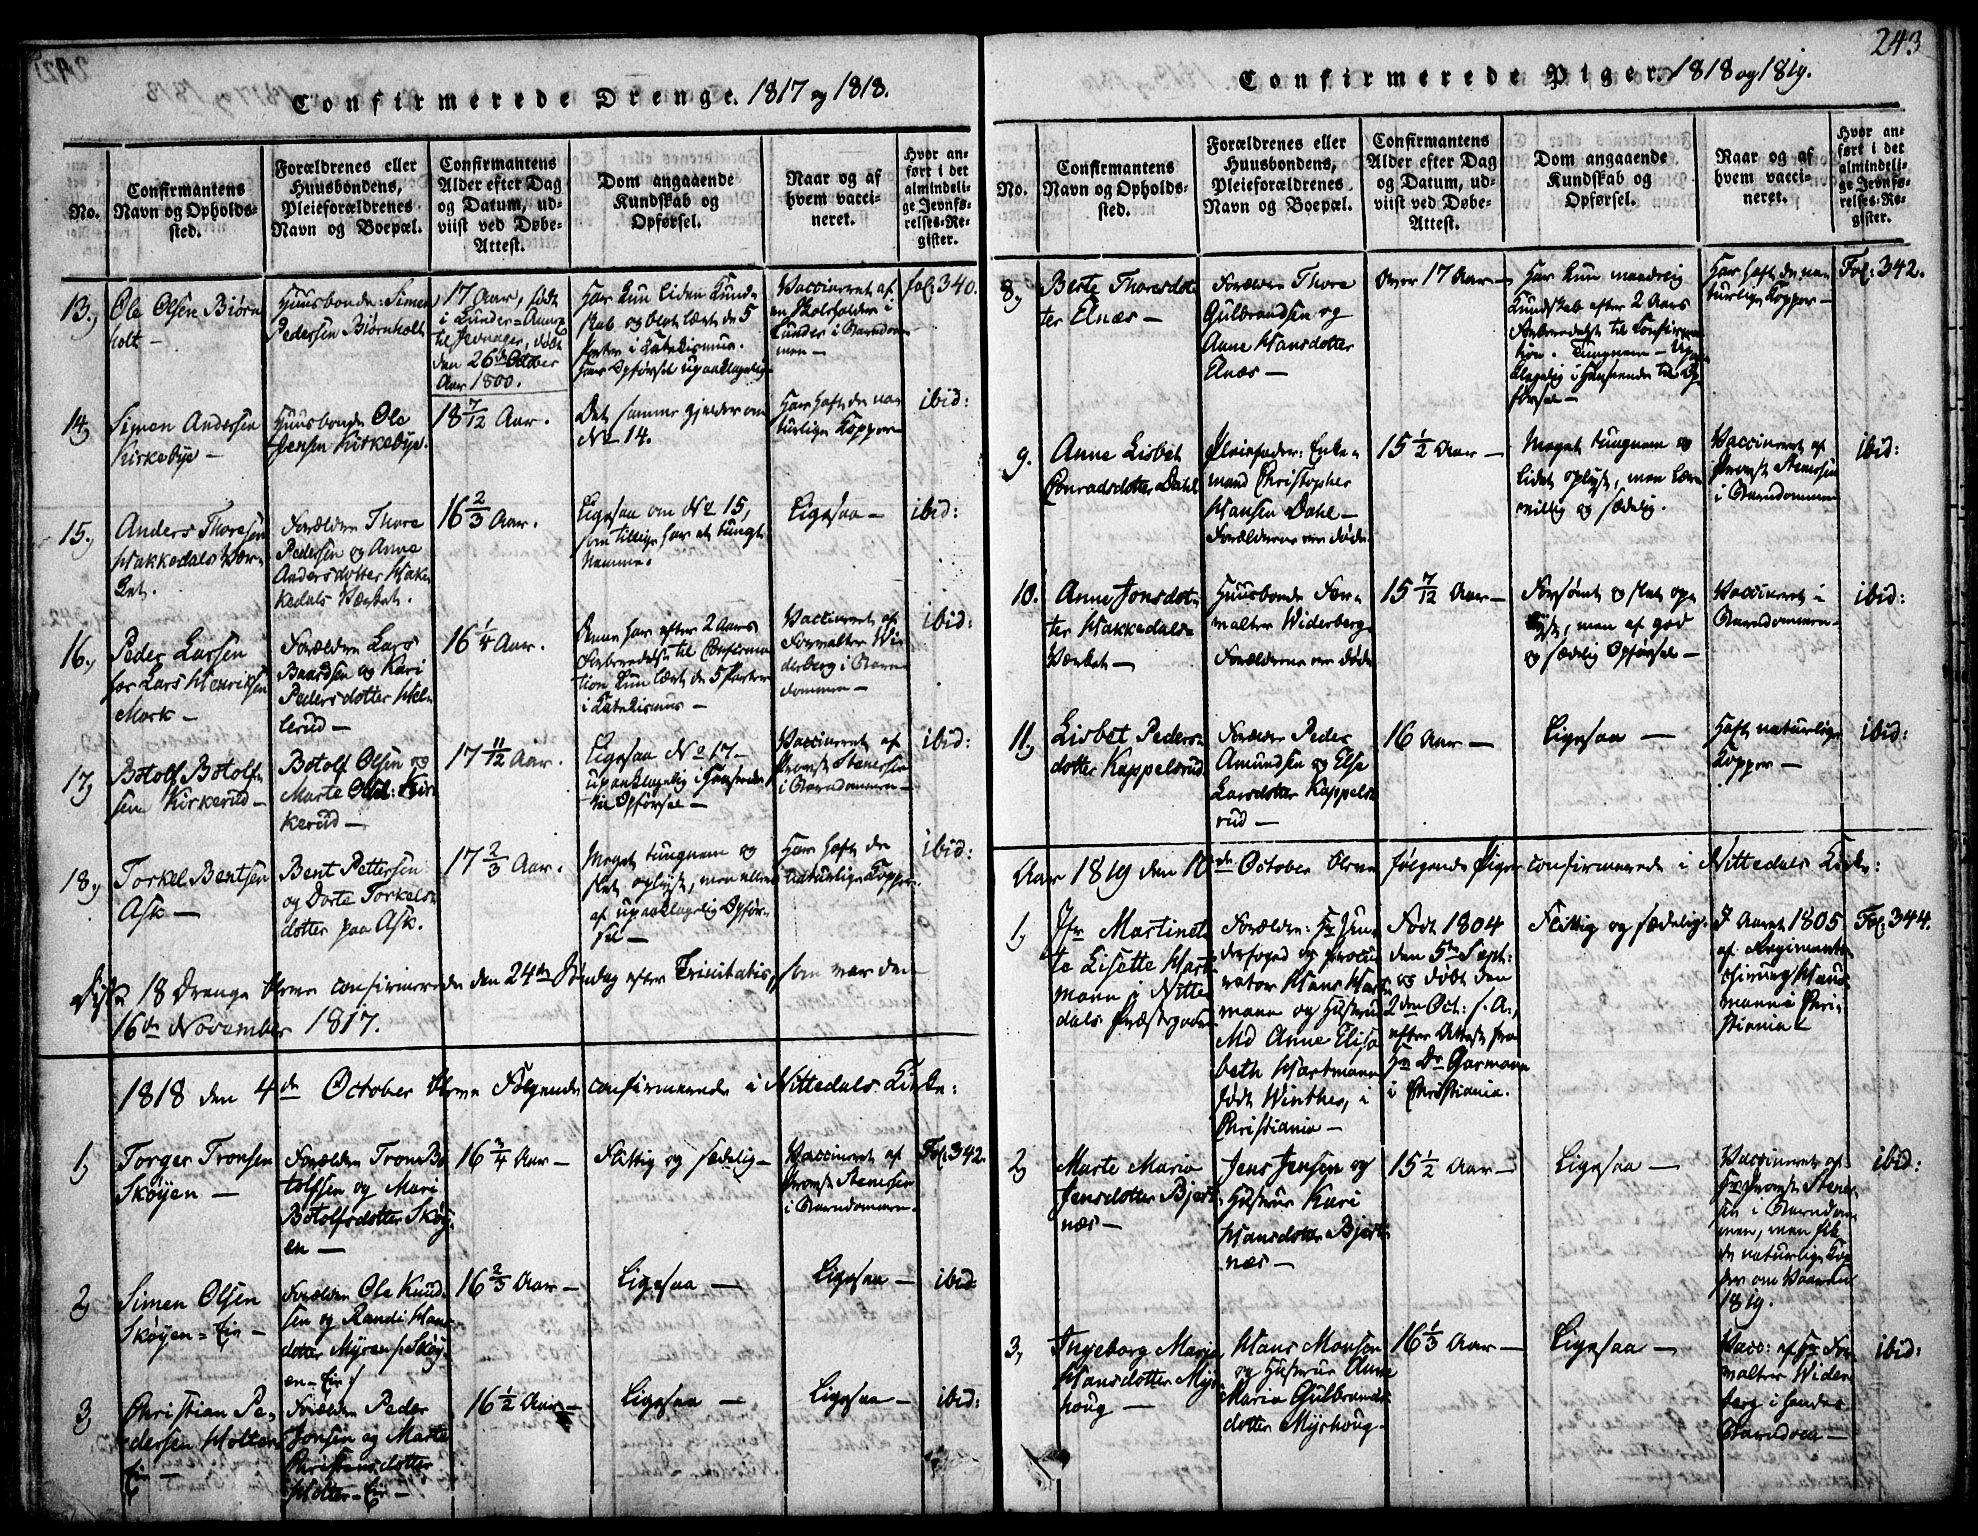 Confirmerede Drenge. 1817 og 1818.
No.
Confirmantens
Navn og Opholds-
sted.
Forældrenes eller
Huusbondens,
Pleieforældrenes
Navn og Boepæl.
Confirmantens
Alder efter Dag
og Datum, ud-
viist ved Døbe-
Attest.
Dom angaaende
Kundskab og
Opførsel.
Naar og af
hvem vacci-
neret.
Hvor an-
ført i det
almindeli-
ge Jevnfø-
relses-Re-
gister.
13,
Ole Olsen Biørn
holt -
Huusbonde: Simen
Pedersen Biørnholt
17 Aar, født
i Lunder-Annex
til Jevnager, døbt
den 26de October
Aar 1800.
Har kun liden Kund-
skab og blot lært de 5
Parter i Catekismus.
Hans Opførsel upaaklagelig
Vaccineret af
en Skoleholder i
Lunder i Barndom-
men -
fol. 340.
14,
Simen Andersen
Kirkebye -
Huusbonde Ole
Jensen Kirkebye.
18 7/12 Aar.
Det samme gjelder om
No 14.
Har haft de na-
turlige Kopper
ibid:
15,
Anders Thoresen
Hakkedals Vær-
ket.
Forældre Thore
Pedersen og Anne
Andersdotter Hak-
kedals Værket.
16 2/3 Aar.
Ligesaa om No 15,
som tillige har et tungt
Nemme.
Ligesaa -
ibid:
16,
Peder Larsen
for Lars Henriksen
Mork -
Forældre Lars
Baardsen og Kari
Pedersdotter Hel-
lerud -
16 1/4 Aar.
Denne har efter 2 Aars
Forberedelse til Confirma-
tion kun lært de 5 Parter
i Catekismus -
Vaccineret af
Forvalter Wi-
derberg i Barn-
dommen -
ibid:
17,
Botolf Botolf-
sen Kirkerud -
Botolf Olsen og
Marte Olsd: Kir
kerud -
17 11/12 Aar.
Ligesaa No 17 -
upaaklagelig i Henseende
til Opførsel -
Vaccineret af
Provst Stenersen
i Barndommen -
ibid:
18,
Torkel Bentsen
Ask -
Bent Pettersen
og Dorte Torkels-
dotter paa Ask.
17 2/3 Aar.
Meget tungnem og
slet oplyst, men ellers
af upaaklagelig Opfør-
sel -
Har haft de
naturlige Kopper
ibid:
Disse 18 Drenge bleve confirmerede den 24de Søndag efter Trinitatis, som var den
16de November 1817.
1818 den 4de October bleve Følgende confirmerede i Nittedals Kirke:
1,
Torger Tronsen
Skøyen -
Forældre Tron Bo
tolfsen og Mari
Botolfsdotter Skøy-
en -
16 3/4 Aar -
Flittig og sædelig -
Vaccineret af
Provst Stenersen
i Barndommen.
Fol. 342.
2,
Simen Olsen
Skøyen-Eie -
Forældre Ole Knud-
sen og Randi Hans
dotter Myren p. Skøy-
en-Eie
16 2/3 Aar -
Ligesaa -
Ligesaa -
ibid
3,
Christian Pe-
dersen Holter
Eie -
Forældre Peder
Jonsen og Marte
Christensdotter
Holter-Eie -
16 1/2 Aar -
Ligesaa -
Ligesaa -
ibid:
243
Confirmerede Piger. 1818 og 1819.
No.
Confirmantens
Navn og Opholds-
sted.
Forældrenes eller
Huusbondens,
Pleieforældrenes
Navn og Boepæl.
Confirmantens
Alder efter Dag
og Datum, ud-
viist ved Døbe-
Attest.
Dom angaaende
Kundskab og
Opførsel.
Naar og af
hvem vacci-
neret.
Hvor an-
ført i det
almindeli-
ge Jevnfø-
relses-Re-
gister.
8,
Berte Thoresdot
ter Elnæs -
Forældre Thore
Gulbrandsen og
Anne Hansdotter
Elnæs -
Over 17 Aar -
Har kun maadelig
Kundskab efter 2 Aars
Forberedelse til Confirma-
tion. Tungnem - Upaa-
klagelig i Henseende til Op-
førsel -
Har haft de na-
turlige Kopper -
Fol. 342.
9.
Anne Lisbet
Conradsdotter Dahl
Pleiefader: Enke-
mand Christopher
Hansen Dahl -
Forældrene ere døde
15 1/2 Aar -
Meget tungnem og
lidet oplyst, men lære-
villig og sædelig.
Vaccineret af
Provst Stenersen
i Barndommen
ibid:
10.
Anne Jonsdot-
ter Hakkedals-
Værket -
Huusbonde For-
valter Widerberg
Forældrene ere døde
15 7/12 Aar -
Forsømt og slet op-
lyst, men af god
og sædelig Opførsel -
Vaccineret i
Barndommen -
ibid:
11,
Lisbet Peders-
dotter Kappelsrud
Forældre Peder
Amundsen og Else
Larsdotter Kappels-
rud -
16 Aar -
Ligesaa -
Haft naturlige
Kopper -
ibid:
Aar 1819 den 10de October bleve følgende Piger confirmerede i Nittedals Kirke:
1,
Jfr Martinet-
te Lisette Hart-
mann i Nitte-
dals Præstegaard
Forældre: Hr Jun-
derfoged og Procu-
rator Hans Hart-
mann og Hustrue
Md Anne Elisa-
beth Hartmann
født Winther, i
Christiania -
Født 1804
den 5te Sept:
og døbt den
2den Oct: s. A.,
efter Attest fra
Hr Dr Garmann
i Christiania.
Flittig og sædelig.
I Aaret 1805
af Regiments-
chirurg Haus
manne Chri-
stiania -
Fol. 344.
2,
Marte Maria
Jensdotter Bjert-
næs -
Jens Jensen og
Hustrue Kari
Hansdotter Bjert-
næs -
15 1/2 Aar -
Ligesaa -
Vaccineret af
Hr Provst Stener-
sen i Barndom-
men, men fik
de naturlige Kop-
per om Vaaren
1819.
ibid:
3,
Ingeborg Maria
Hansdotter Myr-
houg -
Hans Monsen
og Hustrue Anne
Maria Gulbrands-
dotter Myrhoug -
16 1/3 Aar -
Ligesaa -
Vacc: af Hr For-
valter Wider-
berg i hendes
Barndom -
ibid: